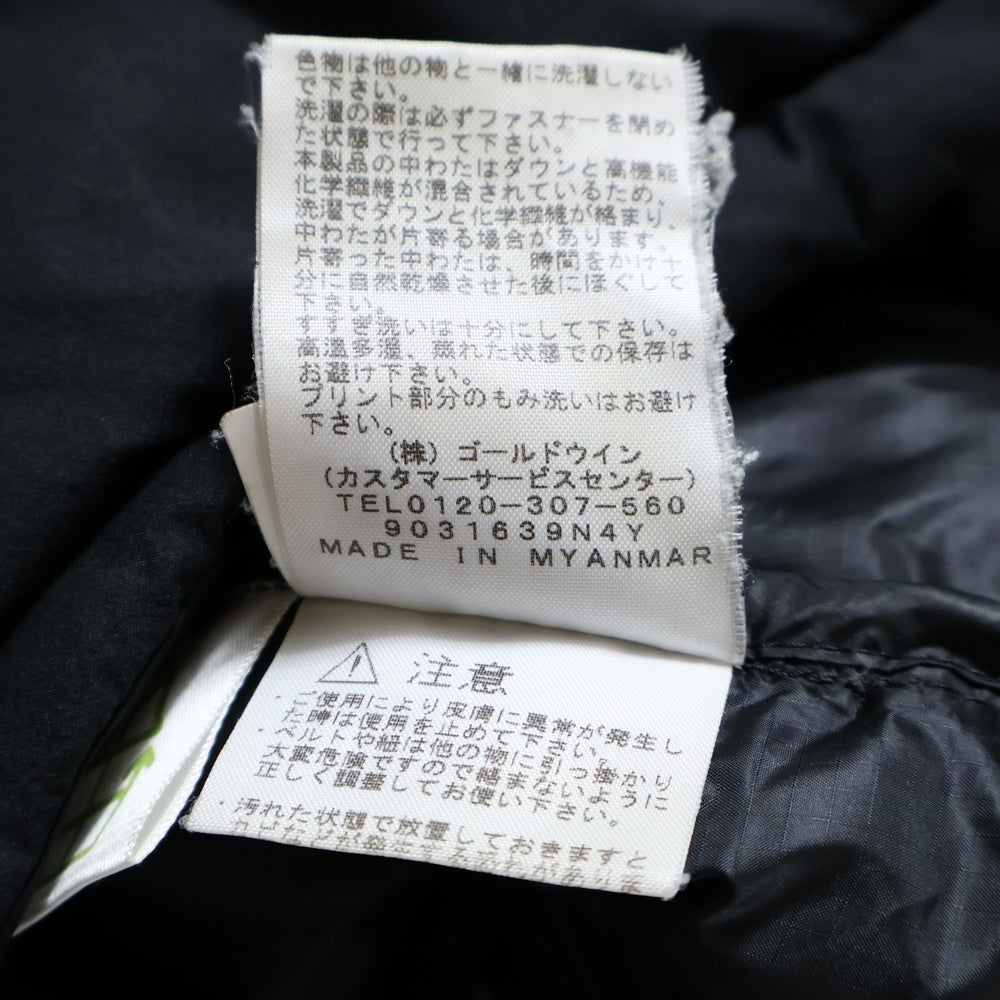 色物は他の物と一緒に洗濯しない
で下さい。
洗濯の際は必ずファスナーを閉め
た状態で行って下さい。
本製品の中わたはダウンと高機能
化学繊維が混合されているため、
洗濯でダウンと化学繊維が絡まり、
中わたが片寄る場合があります。
片寄った中わたは、時間をかけ十
分に自然乾燥させた後にほぐして
下さい。
すすぎ洗いは十分にして下さい。
高温多湿、蒸れた状態での保存は
お避け下さい。
プリント部分のもみ洗いはお避け
下さい。
(株)ゴールドウイン
(カスタマーサービスセンター)
TEL0120-307-560
9031639N4Y
MADE IN MYANMAR
注意
・ご使用により皮膚に異常が発生し
た時は使用を止めて下さい。
・ベルトや紐は他の物に引っ掛かり
大変危険ですので絡まないように
正しく調整してお使い下さい。
・汚れた状態で放置しておきますと